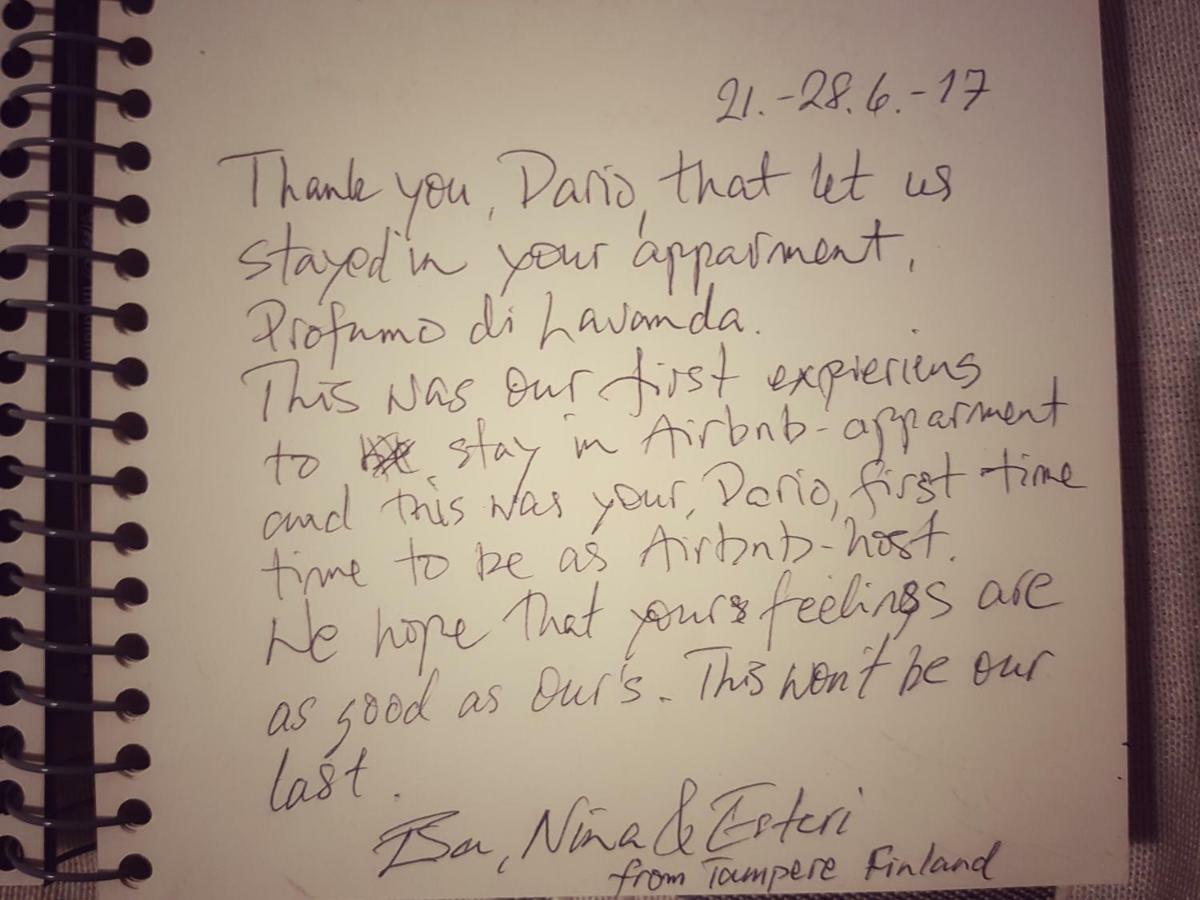 21.-28.6.-17
Thank you, Dario, that let us
stayed in your apparment,
Profumo di Lavanda.
This was our first expieriens
to stay in Airbnb-apparment
and this was your, Dario, first time
time to be as Airbnb-host.
We hope that yours feelings are
as good as our's. This won't be our
last.
Nina & Esteri
from Tampere Finland